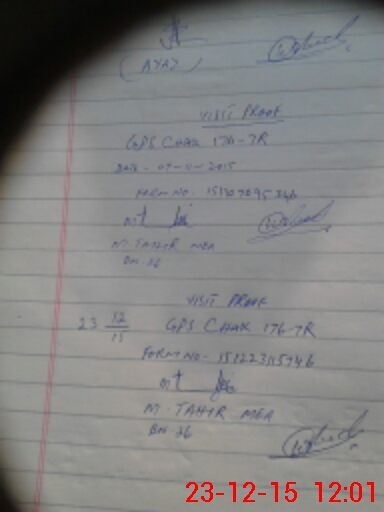 (AYAZ)
VISIT PROOF
GPS CHAK 176-7R
DATE - 07-11-2015
FORM NO.
M. TAHIR MEA
BN 26
VISIT PROOF
23 12/15 GPS CHAK 176-7R
FORM NO- 151223115746
M. TAHIR MEA
BN 26
23-12-15 12:01